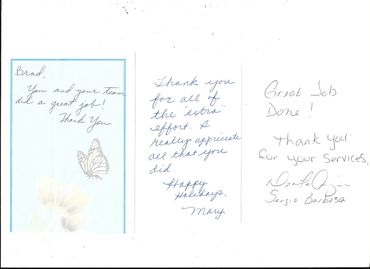 Brad,
You and your team
did a great job!
Thank You
Thank you
for all of
the "extra"
effort. I
really appreciate
all that you
did.
Happy
Holidays,
Mary
Great Job
Done!
Thank you
for your services,
Sergio Barbosa